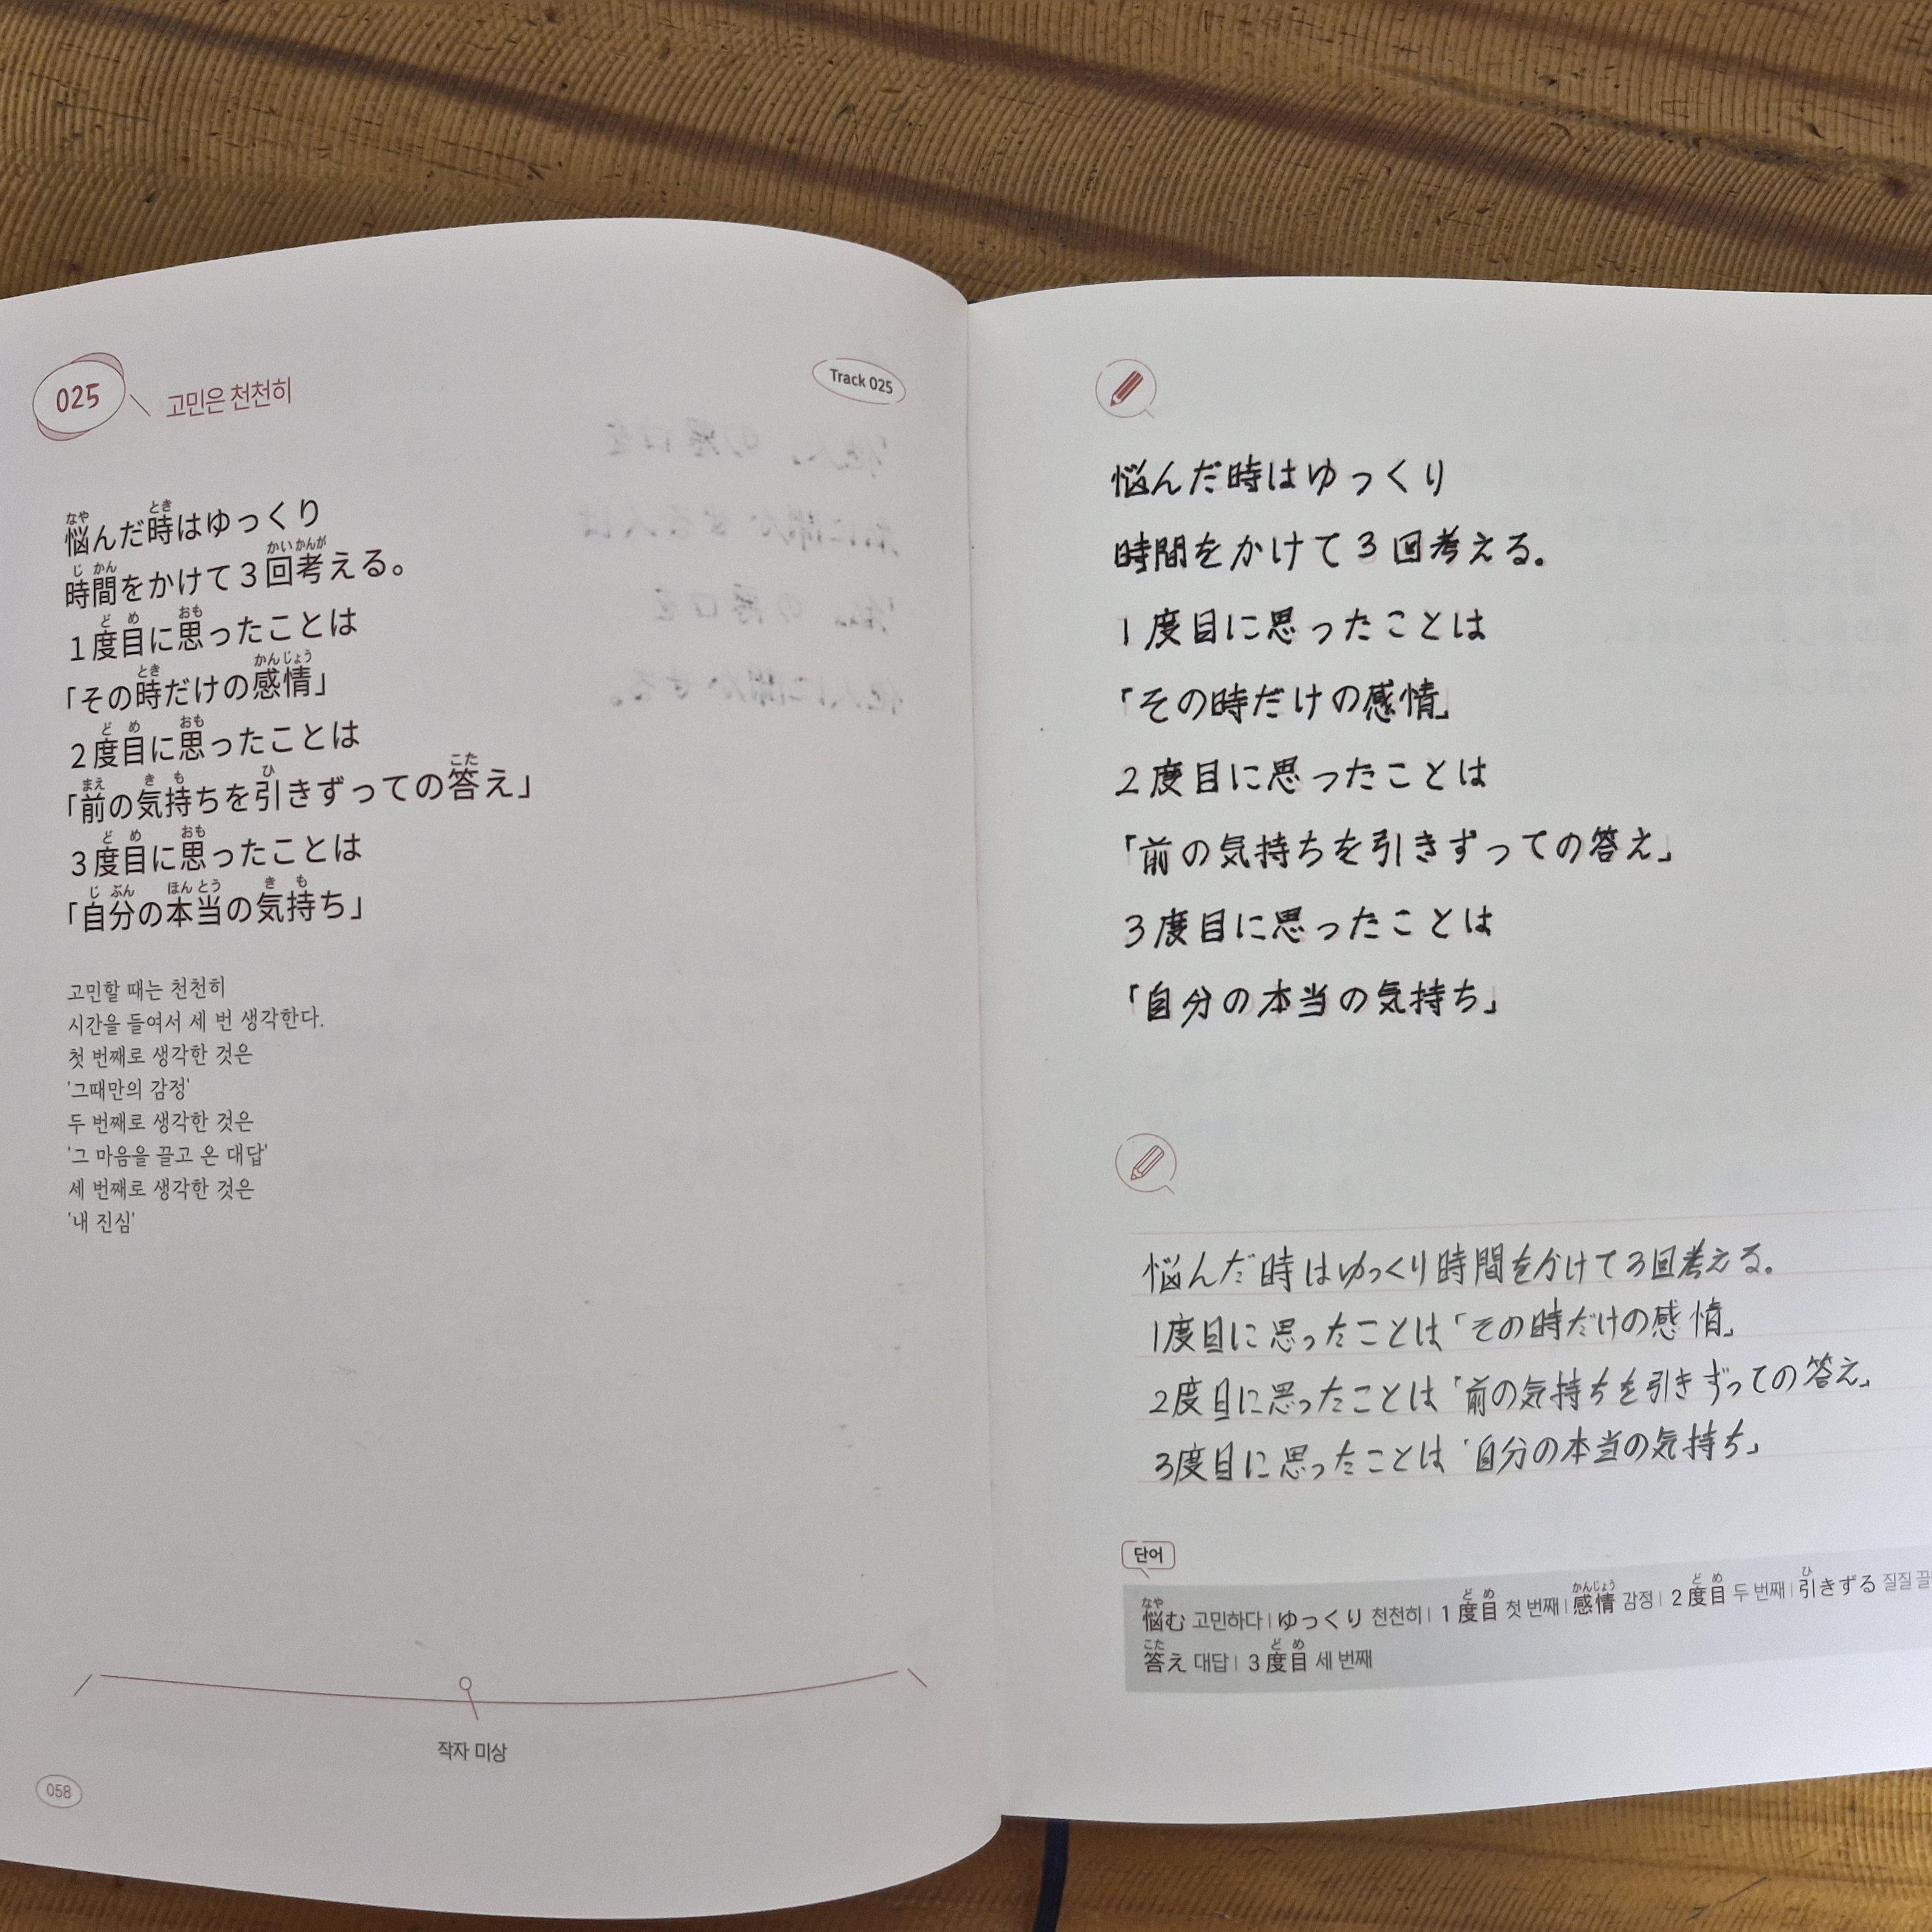 025
고민은 천천히
Track 025
悩んだ時はゆっくり
時間をかけて3回考える。
1度目に思ったことは
「その時だけの感情」
2度目に思ったことは
「前の気持ちを引きずっての答え」
3度目に思ったことは
「自分の本当の気持ち」
고민할 때는 천천히
시간을 들여서 세 번 생각한다.
첫 번째로 생각한 것은
'그때만의 감정'
두 번째로 생각한 것은
'그 마음을 끌고 온 대답'
세 번째로 생각한 것은
'내 진심'
작자 미상
058
悩んだ時はゆっくり
時間をかけて3回考える。
1度目に思ったことは
「その時だけの感情」
2度目に思ったことは
「前の気持ちを引きずっての答え」
3度目に思ったことは
「自分の本当の気持ち」
悩んだ時はゆっくり時間をかけて3回考える。
1度目に思ったことは「その時だけの感情」
2度目に思ったことは「前の気持ちを引きずっての答え」
3度目に思ったことは「自分の本当の気持ち」
단어
悩む 고민하다 | ゆっくり 천천히 | 1度目 첫 번째 | 感情 감정 | 2度目 두 번째 | 引きずる 질질
答え 대답 | 3度目 세 번째